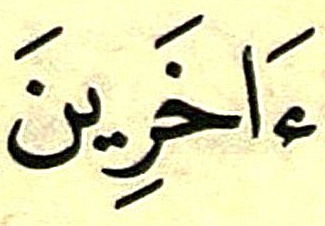 ءَاخَرِينَ